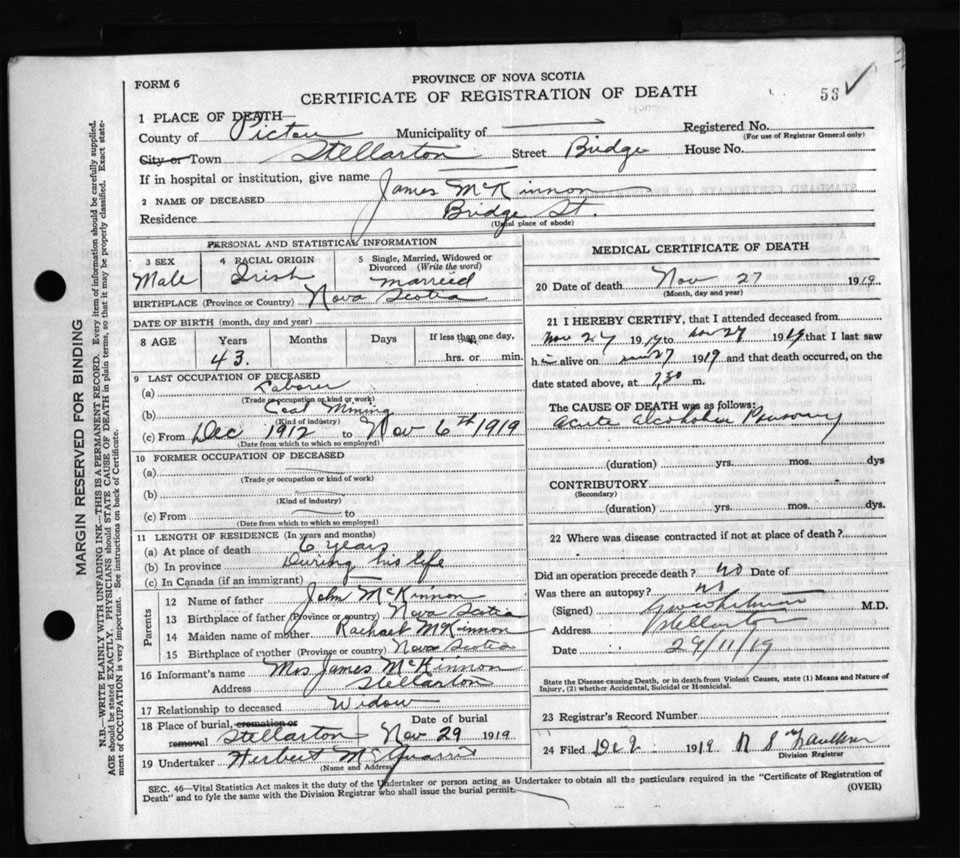 PROVINCE OF NOVA SCOTIA
FORM 6
CERTIFICATE OF REGISTRATION OF DEATH
53
1 PLACE OF DEATH
County of Pictou Municipality of Registered No.
(For use of Registrar General only)
City or Town Stellarton Street Bridge House No.
If in hospital or institution, give name
2 NAME OF DECEASED James McKinnon
Residence Bridge St.
(Usual place of abode)
PERSONAL AND STATISTICAL INFORMATION
3 SEX 4 RACIAL ORIGIN 5 Single, Married, Widowed or
Divorced (Write the word)
Male Irish married
BIRTHPLACE (Province or Country) Nova Scotia
DATE OF BIRTH (month, day and year)
8 AGE Years Months Days If less than one day,
43. hrs. or min.
9 LAST OCCUPATION OF DECEASED
(a) Laborer
(Trade or occupation or kind or work)
(b) Coal Mining
(Kind of industry)
(c) From Dec 1912 to Nov 6th 1919
(Date from which to which so employed)
10 FORMER OCCUPATION OF DECEASED
(a)
(Trade or occupation or kind of work)
(b)
(Kind of industry)
(c) From to
(Date from which to which so employed)
11 LENGTH OF RESIDENCE (In years and months)
(a) At place of death 6 years
(b) In province During his life
(c) In Canada (if an immigrant)
Parents
12 Name of father John McKinnon
13 Birthplace of father (Province or country) Nova Scotia
14 Maiden name of mother Rachael McKinnon
15 Birthplace of mother (Province or country) Nova Scotia
16 Informant's name Mrs James McKinnon
Address Stellarton
17 Relationship to deceased Widow
18 Place of burial, cremation or Date of burial
removal Stellarton Nov 29 1919
19 Undertaker Herbert McQuarrie
(Name and Address)
MEDICAL CERTIFICATE OF DEATH
20 Date of death Nov 27 1919
(Month, day and year)
21 I HEREBY CERTIFY, that I attended deceased from
Nov 27 1919 to Nov 27 1919 that I last saw
h alive on Nov 27 1919 and that death occurred, on the
date stated above, at 7.30 m.
The CAUSE OF DEATH was as follows:
Acute Alcoholic Poisoning
(duration) yrs. mos. dys
CONTRIBUTORY
(Secondary)
(duration) yrs. mos. dys.
22 Where was disease contracted if not at place of death?
Did an operation precede death? no Date of
Was there an autopsy? no
(Signed) M.D.
Address Stellarton
Date 29/11/19
State the Disease causing Death, or in death from Violent Causes, state (1) Means and Nature of
Injury, (2) whether Accidental, Suicidal or Homicidal.
23 Registrar's Record Number
24 Filed Dec 1919
Division Registrar
SEC. 46—Vital Statistics Act makes it the duty of the Undertaker or person acting as Undertaker to obtain all the particulars required in the "Certificate of Registration of
Death" and to fyle the same with the Division Registrar who shall issue the burial permit.
(OVER)
MARGIN RESERVED FOR BINDING
N.B.—WRITE PLAINLY WITH UNFADING INK—THIS IS A PERMANENT RECORD. Every item of information should be carefully supplied.
AGE should be stated EXACTLY. PHYSICIANS should STATE CAUSE OF DEATH in plain terms, so that it may be properly classified. Exact state-
ment of OCCUPATION is very important. See instructions on back of Certificate.